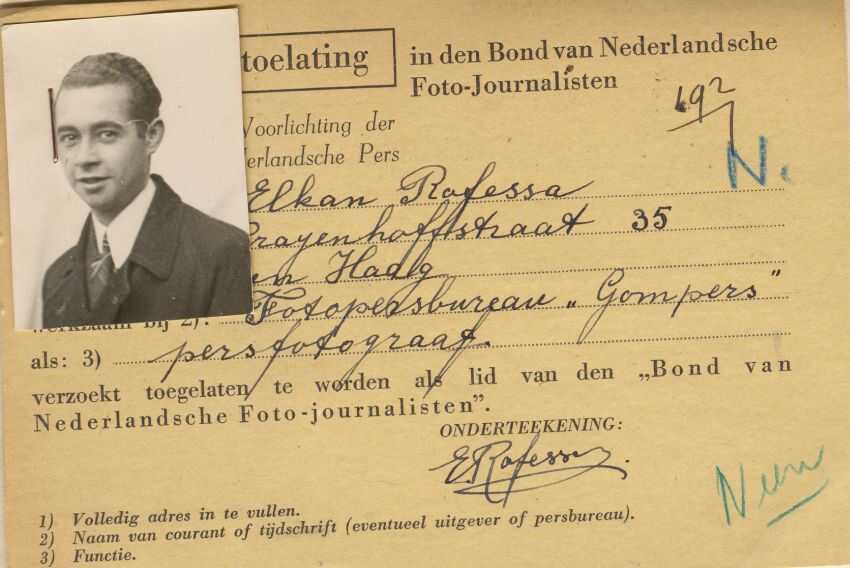 toelating
in den Bond van Nederlandsche
Foto-Journalisten
192
N.
Voorlichting der
derlandsche Pers
Elkan Rafessa
Crayenhoffstraat 35
en Haag
werkzaam bij 2): Fotopersbureau „Gompers"
als: 3) persfotograaf.
verzoekt toegelaten te worden als lid van den „Bond van
Nederlandsche Foto-journalisten”.
ONDERTEEKENING:
E. Rafessa.
1) Volledig adres in te vullen.
2) Naam van courant of tijdschrift (eventueel uitgever of persbureau).
3) Functie.